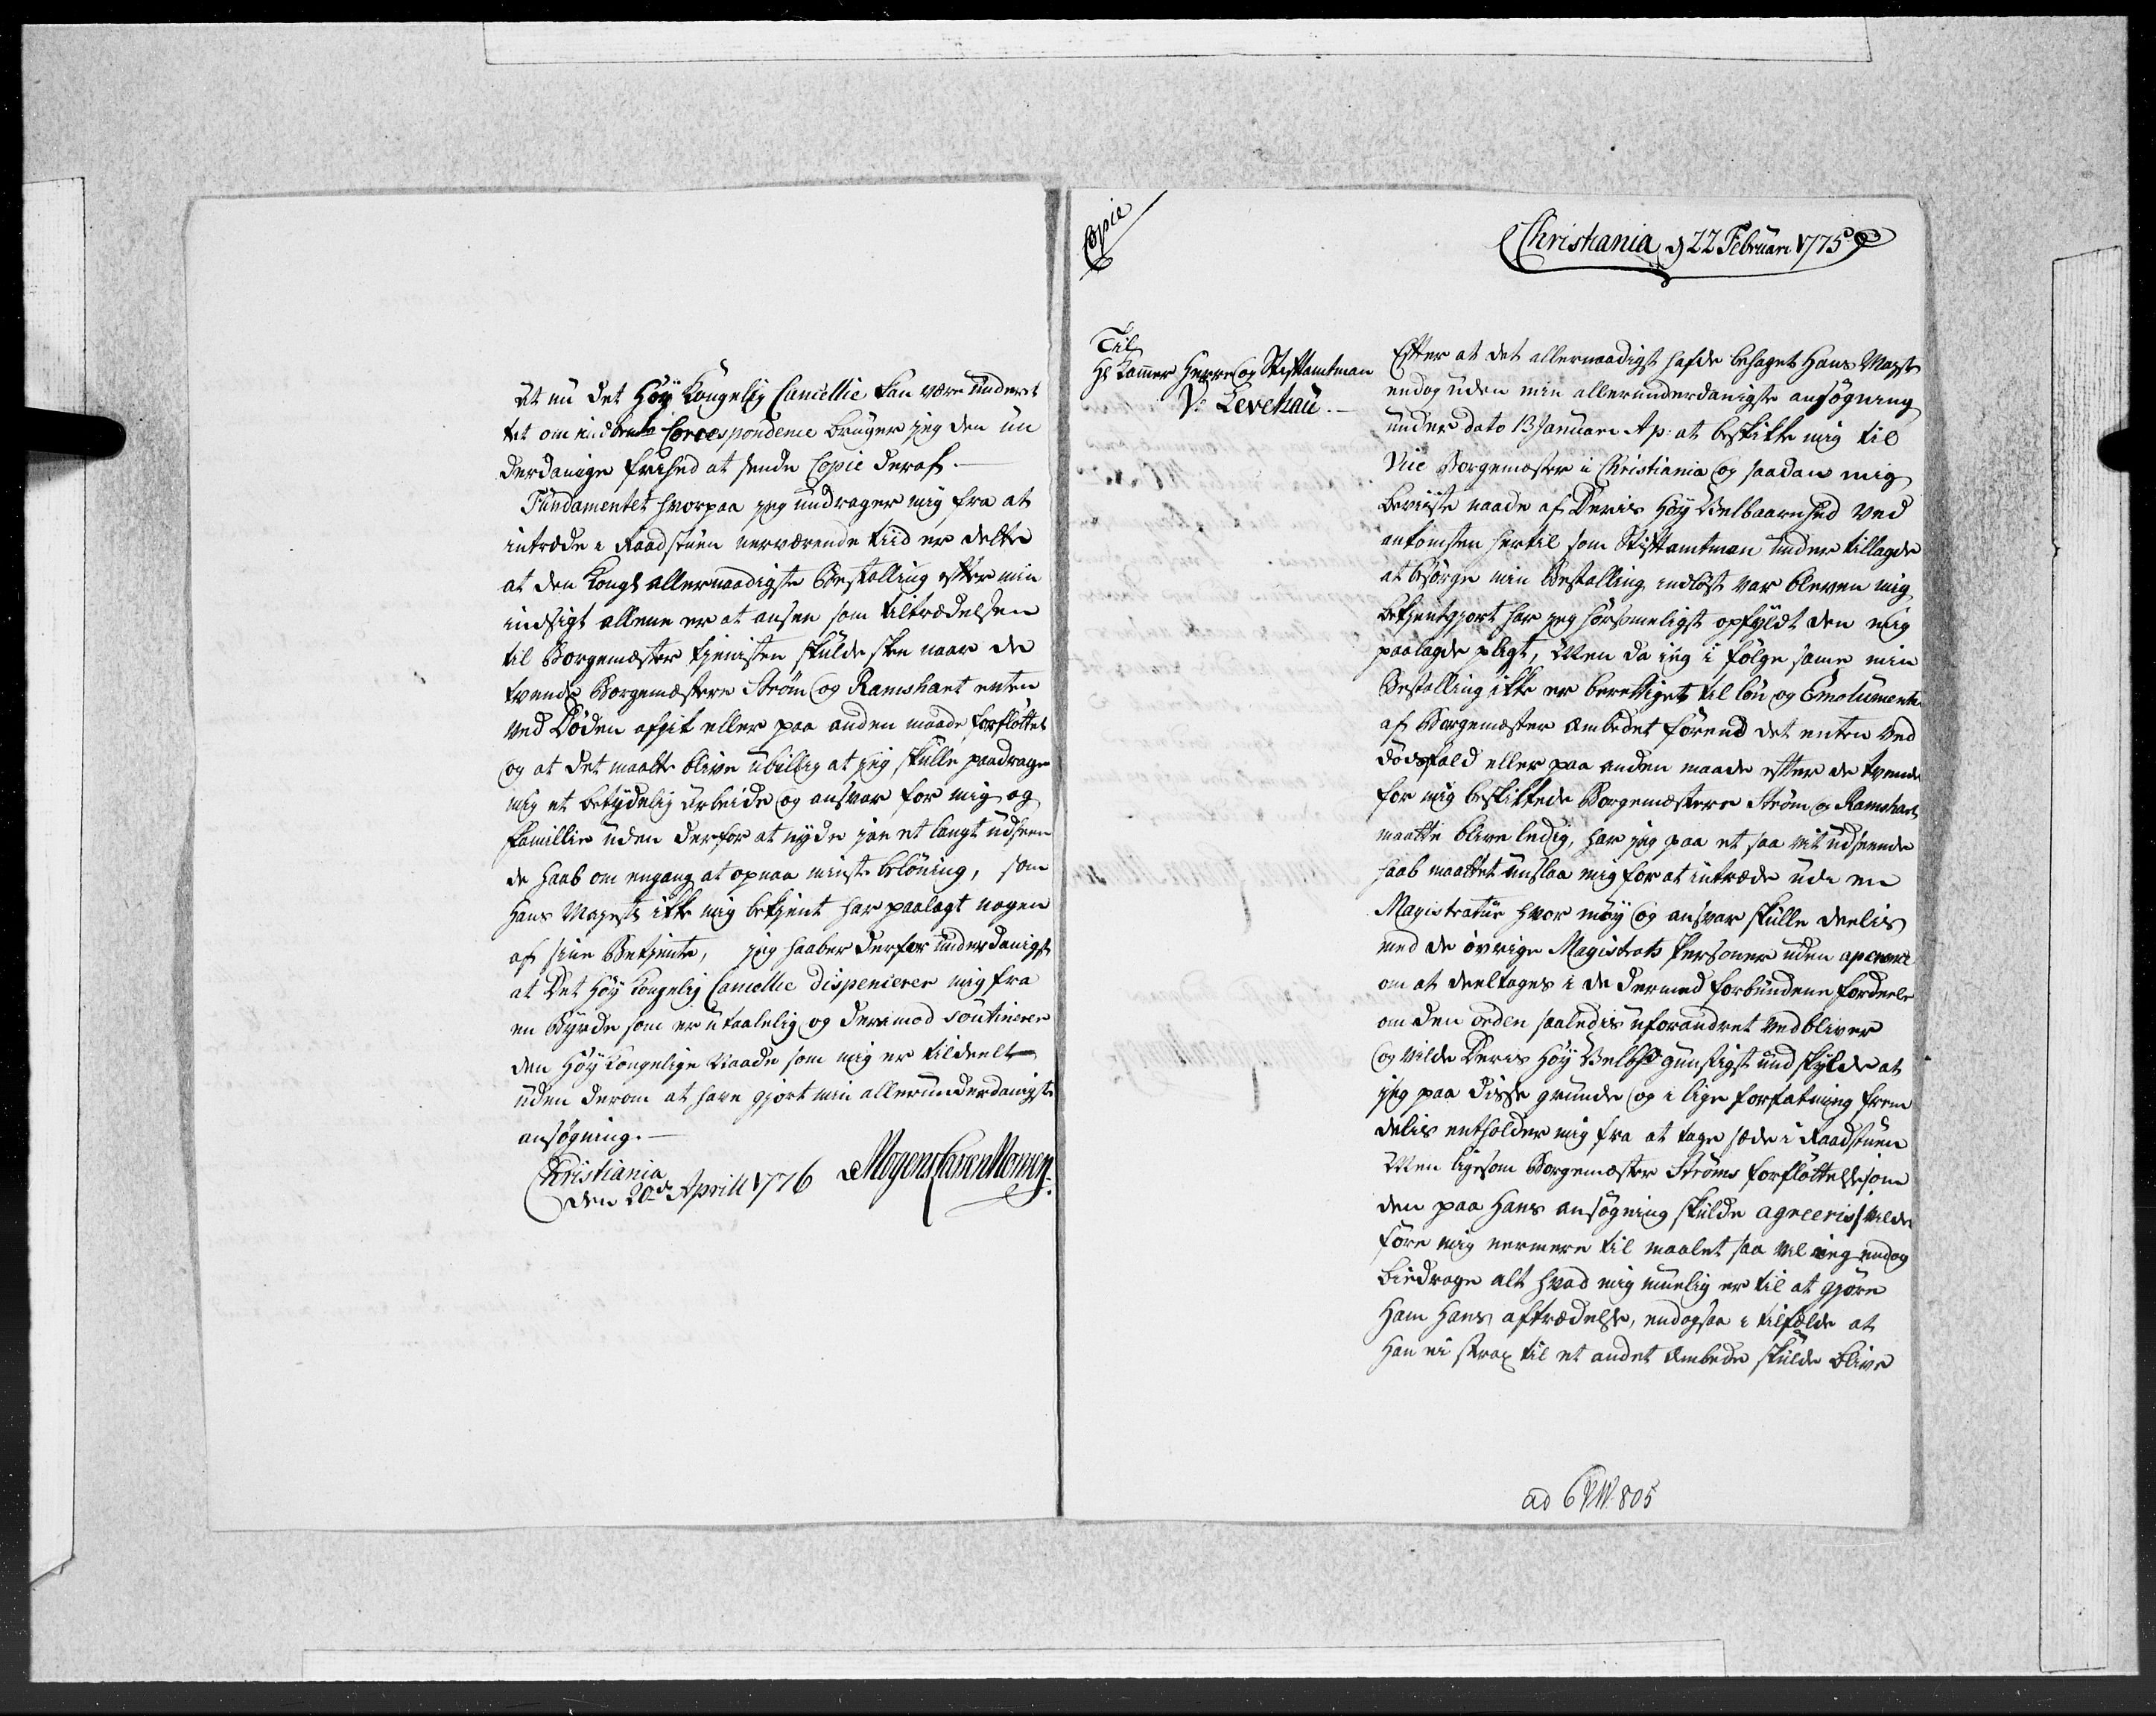 at nu det Høy Kongelig Cancellie kan være underet
tet om endeel Correspondence bruger jeg den un
derdanige frihed at sende Copie deraf.
Fundamentet hvorpaa jeg undrager mig fra at
intræde i Raadstuen nerværende tiid er dette
at den Kongl allernaadigste Bestalling efter min
indsigt allene er at ansee som tiltrædelsen
til Borgemester tjenisten skulde skee naar de
tvende Borgemestere Strøm og Ramshart enten
ved Døden afgik eller paa anden maade forflöttet
og at det maatte blive ubillig at jeg skulle paadrage
mig et betydelig arbeide og ansvar for mig og
Familie uden derfor at nyde jøe et langt udseen
de haab om engang at opnaa minste belöning, som
Hans Majestt ikke mig bekjent har paalagt nogen
af sine Betjente, jeg haaber derfor underdanigst
at Det Høy Kongelig Cancellie dispencerer mig fra
en Byrde som er utaalelig og derimod soutinerer
den Høy Kongelige Naade som mig er tildeelt
uden derom at have gjort min allerunderdanigste
ansøgning.
Christiania
den 20de Aprill 1776 Mogens Larsen Monsen
Copie
Christiania d 22 Februari 1775
Til
Hr Kammer Herre og Stiftamtman
V. Levetzau.
Efter at det allernaadigst hafde behaget Hans Mayst
endog uden min allerunderdanigste ansøgning
under dato 13 Januari Ap: at beskikke mig til
Vice Borgemester i Christiania og saadan mig
beviiste naade af Deris Høy Velbaarenhed ved
ankomsten hertil som Stiftamtman under tillagde
at besørge min Bestalling indløst var bleven mig
bekjentgjort har jeg hørsommeligst opfyldt den mig
paalagde pligt, Men da jeg i følge samme min
Bestalling ikke er berettiget til løn og Emolumenter
af Borgemester Embedet førend det enten ved
dødsfald eller paa anden maade efter de tvende
for mig beskikkede Borgemestere Strøm og Ramshart
maatte blive ledig, har jeg paa et saa vit udseende
haab maattet undslaa mig for at intræde udi en
Magistratur hvor møy og ansvar skulle deelis
med de øvrige Magistrats Personer uden apparence
om at deeltages i de dermed forbundene fordeele
om den orden saaledis uforandret vedbliver
og vilde Deris Høy Velbhd gunstigst undskylde at
jeg paa disse grunde og i lige forfatning frem
delis entholder mig fra at tage sæde i Raadstuen
Men ligesom Borgemester Strøms forflöttelse som
den paa Hans ansøgning skulde agreeris vilde
føre mig nermere til maalet saa vil jeg endog
bidrage alt hvad mig muelig er til at gjøre
Ham Hans aftrædelse, endogsaa i tilfælde at
Han ei strax til et andet Embede skulde blive
ad 805